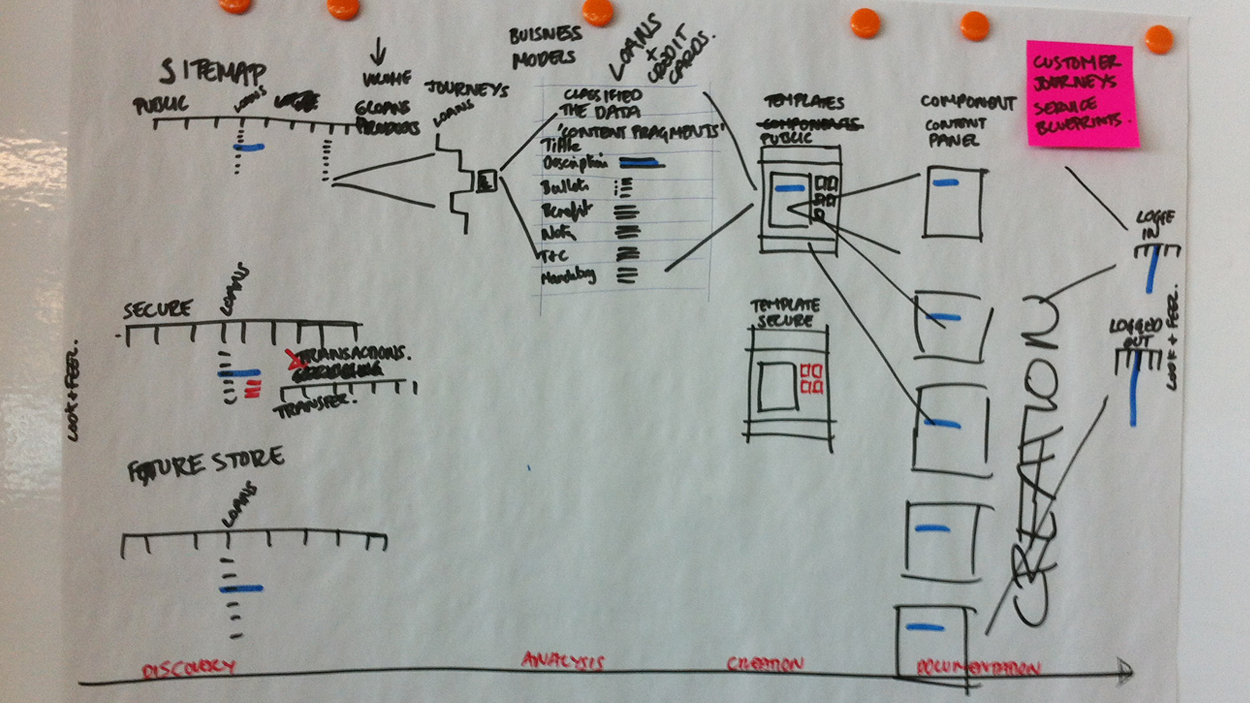 SITEMAP
PUBLIC
LOANS
VOLUME
GLOANS
PRODUCTS
JOURNEYS
LOANS
BUISNESS
MODELS
LOANS
+
CREDIT
CARDS.
CLASSIFIED
THE DATA
'CONTENT FRAGMENTS'
Title
Description
Bullets
Benefit
Note
T+C
Mandatory
TEMPLATES
COMPONENTS
PUBLIC
COMPONENT
CONTENT
PANEL
CUSTOMER
JOURNEYS
SERVICE
BLUEPRINTS.
LOGGE
IN
LOGGED
OUT
LOOK + FEEL.
SECURE
LOANS
TRANSACTIONS.
TRANSFER.
LOOK + FEEL.
TEMPLATE
SECURE
CREATION
FUTURE STORE
LOANS
DISCOVERY
ANALYSIS
CREATION
DOCUMENTATION